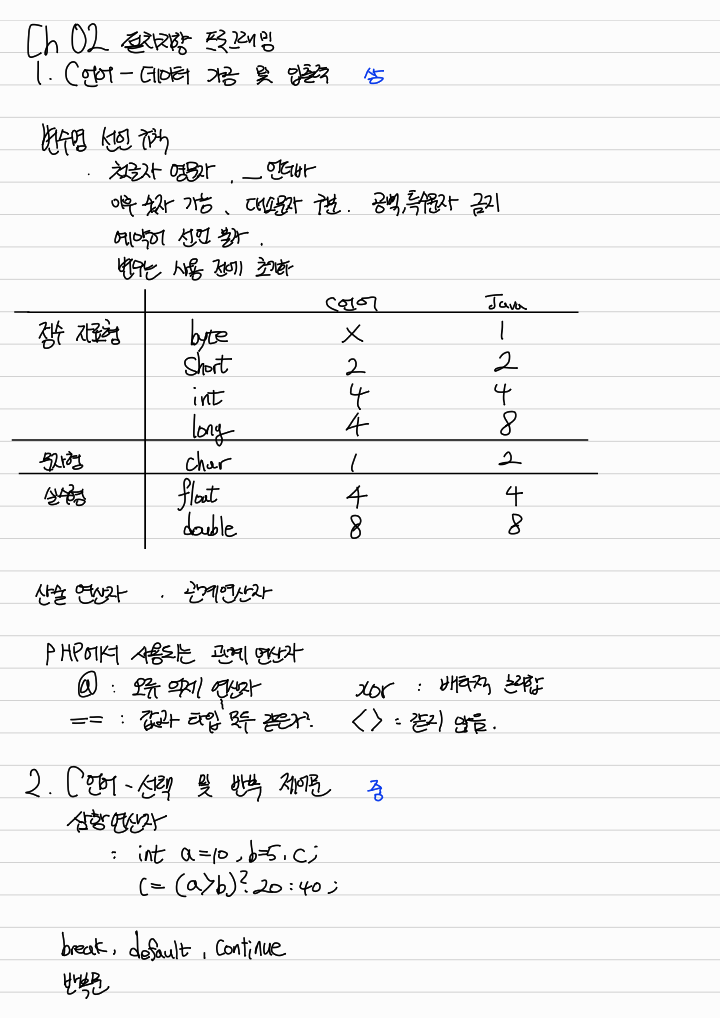 Ch 02 절차지향 프로그래밍
1. C언어 - 데이터 가공 및 입출력 상
변수명 선언 규칙
· 첫글자 영문자, _ 언더바
이후 숫자 가능, 대소문자 구분. 공백,특수문자 금지
예약어 선언 불가.
변수는 사용 전에 초기화
C언어 Java
정수 자료형 byte X 1
short 2 2
int 4 4
long 4 8
문자형 char 1 2
실수형 float 4 4
double 8 8
산술 연산자 . 관계연산자
PHP에서 사용되는 관계 연산자
@ : 오류 억제 연산자 xor : 배타적 논리합
== : 값과 타입 모두 같은가? <> : 같지 않음.
2. C언어 - 선택 및 반복 제어문 중
삼항연산자
: int a=10, b=5, c;
c= (a>b)? 20 : 40 ;
break, default, continue
반복문